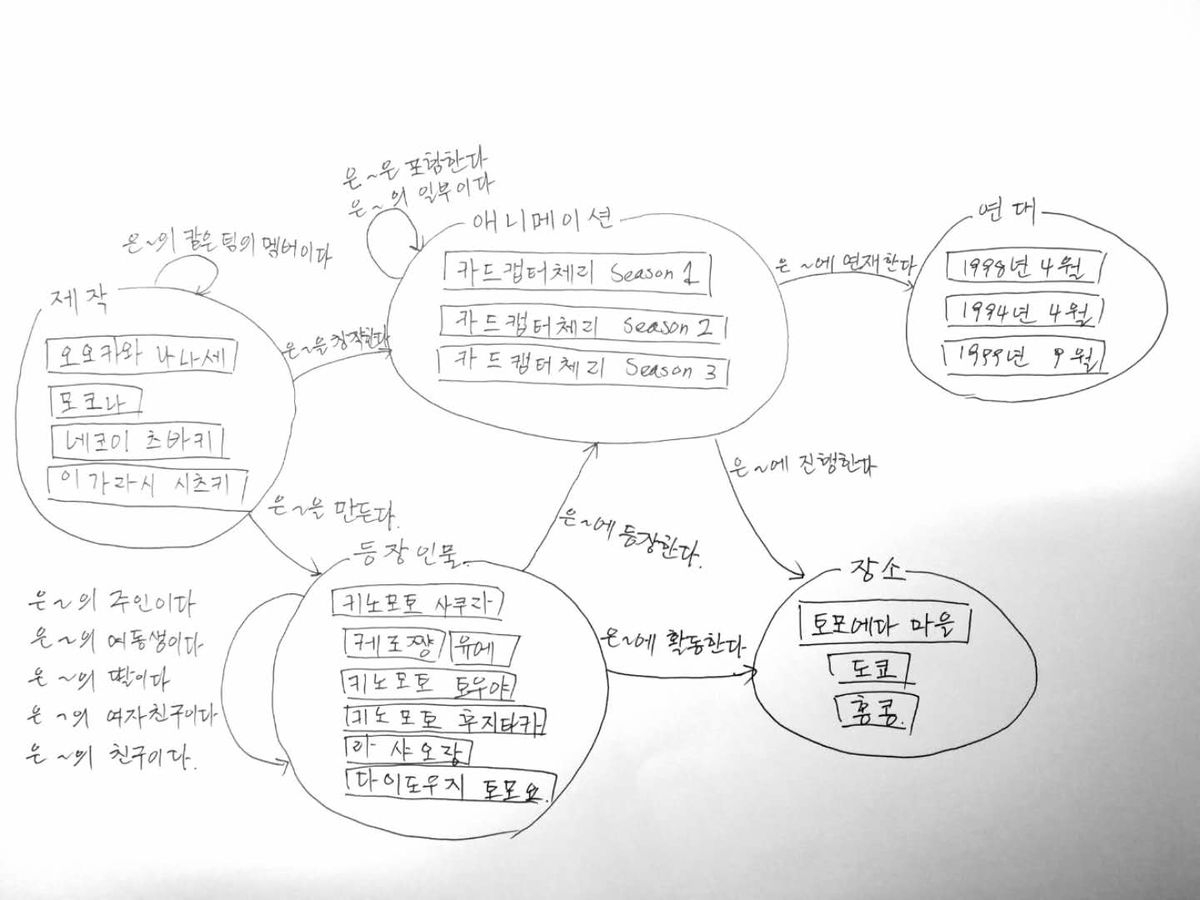 은~은 포함한다
은~의 일부이다
애니메이션
카드캡터체리 Season 1
카드캡터체리 Season 2
카드캡터체리 Season 3
은~에 연재한다
연대
1998년 4월
1994년 4월
1999년 9월
은~의 같은 팀의 멤버이다
제작
오오카와 나나세
모코나
네코이 츠바키
이가라시 시츠키
은~을 창작한다
은~을 만든다.
은~에 등장한다.
은~에 진행한다
등장인물
키노모토 사쿠라
케로쨩
유에
키노모토 토우야
키노모토 후지타카
라 샤오랑
다이도우지 토모요.
은~의 주인이다
은~의 여동생이다
은~의 딸이다
은~의 여자친구이다
은~의 친구이다.
은~에 활동한다.
장소
토모에다 마을
도쿄
홍콩.